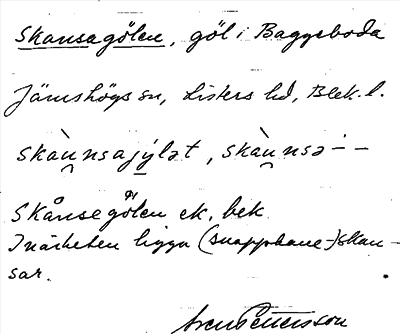 Skansagölen, göl i Baggeboda
Jämshögs sn, Listers hd, Blek. l.
skàu̯nsajy̠lət, skàu̯nsə- -
Skånsegölen ek. bek.
I närheten ligga (snapphane-)skan-
sar.
Sven Pettersson